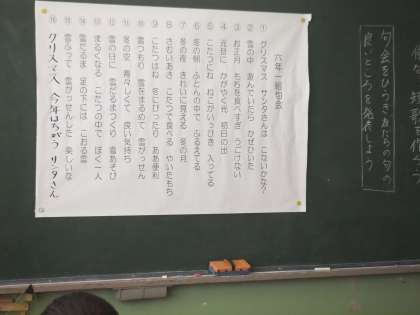 俳句 短歌を作ろう
句会をひらき友だちの句の
良いところを発表しよう
六年一組句会
① クリスマス サンタさんは こないかな?
② 雪の中 遊んでいたら かぜひいた
③ お正月 もちを食べすぎ うごけない
④ 元旦に かがやく光 初日の出
⑤ こたつにね ねこがいっぴき 入ってる
⑥ 冬の朝 ふとんの中で ふるえてる
⑦ 冬の夜 きれいに見える 冬の月
⑧ さむいあさ こたつで食べる やいたもち
⑨ こたつはね 冬にぴったり ああ便利
⑩ 雪つもり 雪をまるめて 雪がっせん
⑪ 冬の空 青々しくて 良い気持ち
⑫ 雪の日に 雪だるまつくり 雪あそび
⑬ まるくなる こたつの中で ぼく一人
⑭ 雪だるま 足の下には こおる雪
⑮ 雪ふって 雪がっせんした 楽しいな
⑯ クリスマス 今年はちがう サンタさん